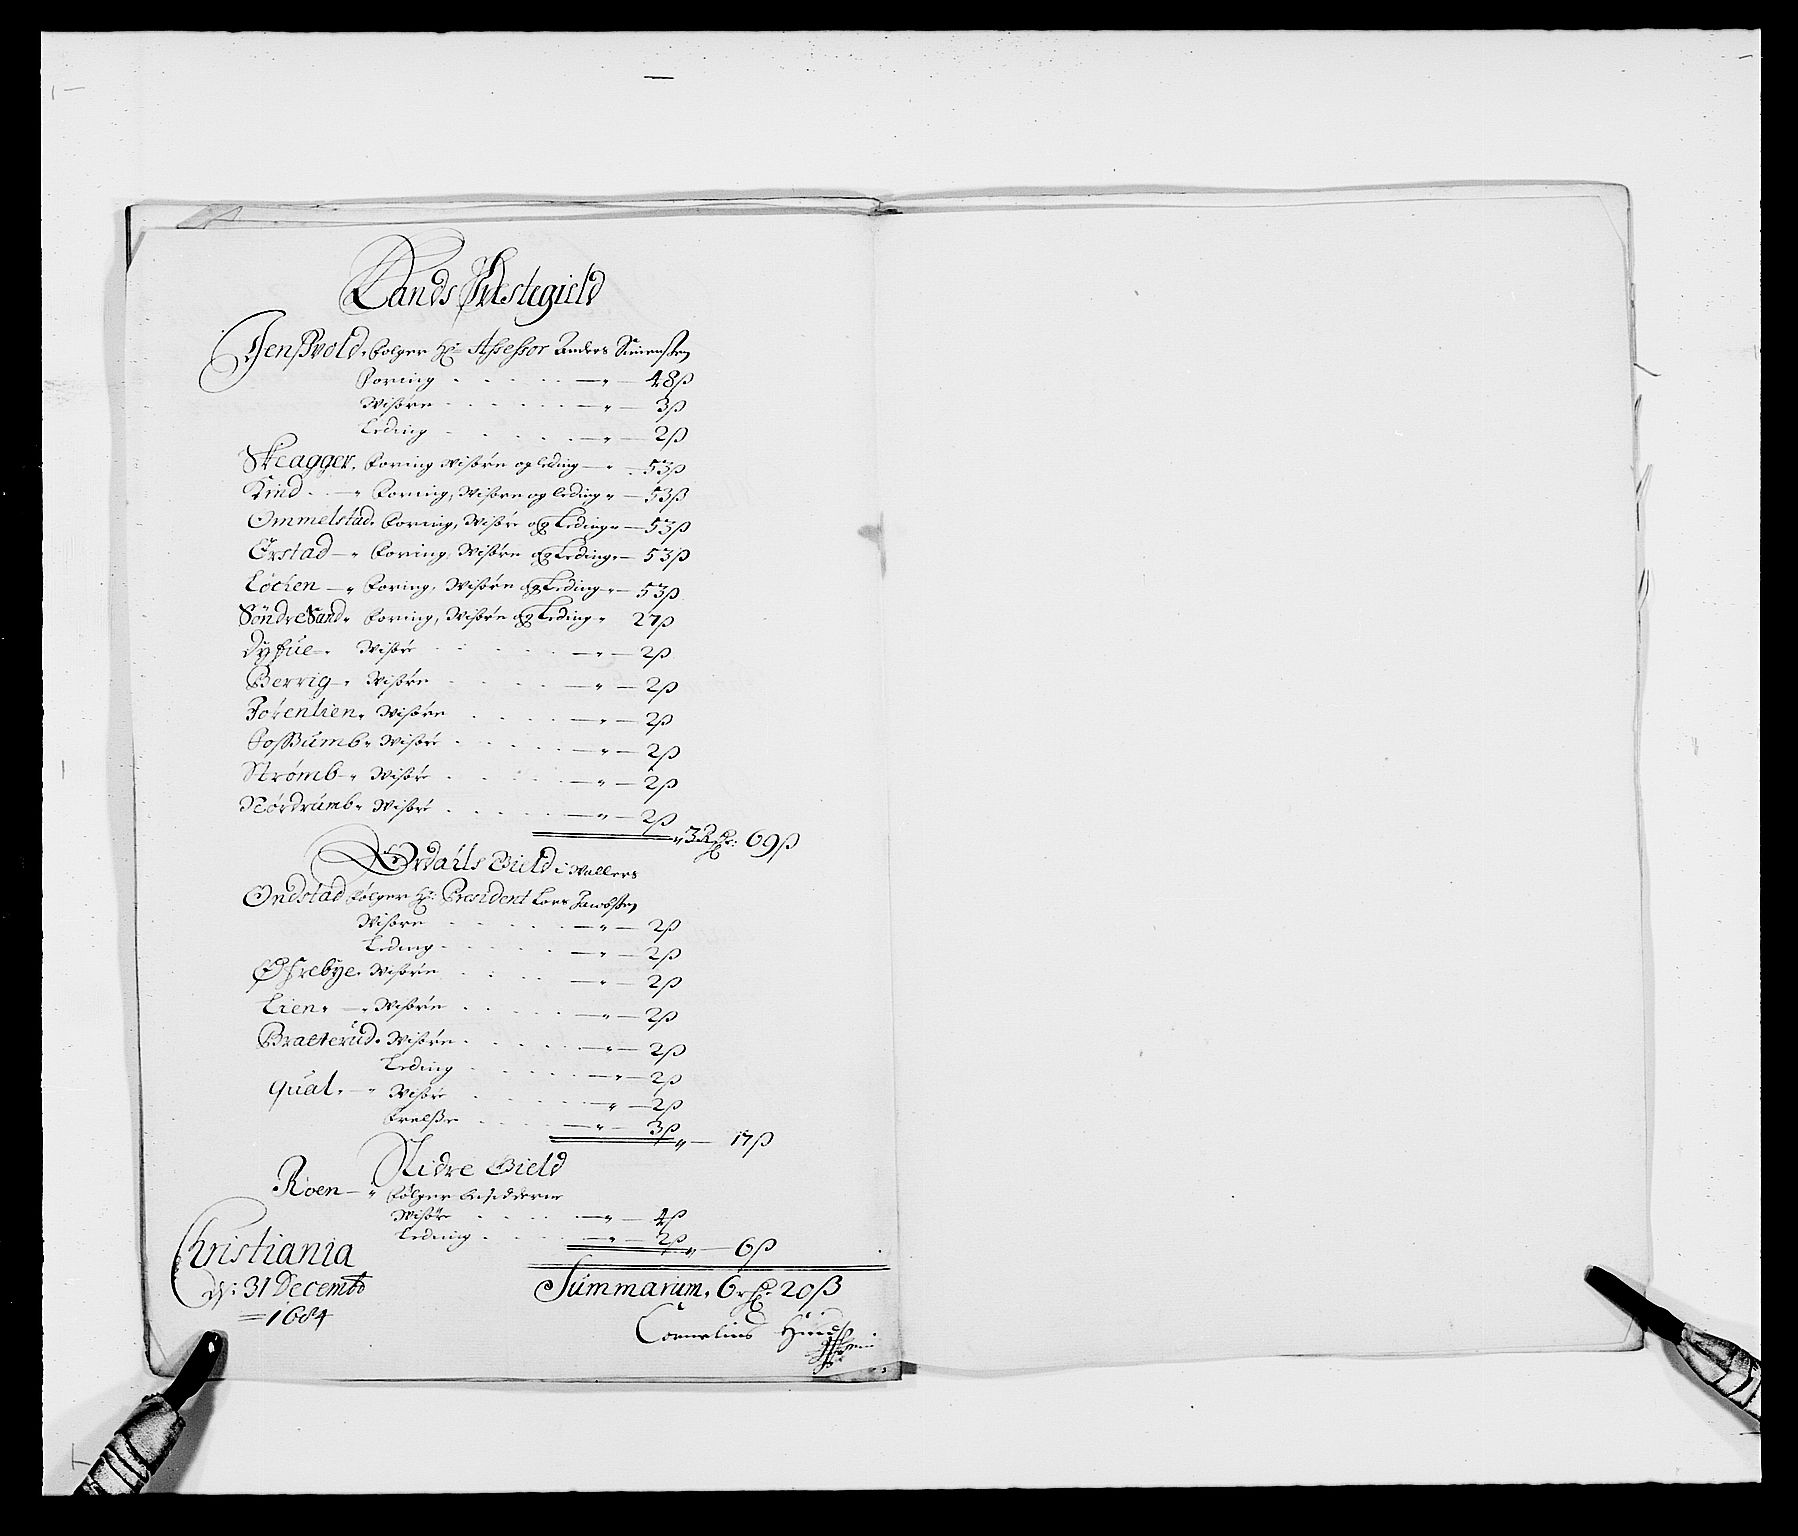 Lands Præstegield
Jenßvold, Følger Hr: Assessor Anders Simenßen
Foring - - - " - 48ß
Wißøre - - - " - 3ß
Leding - - - " - 2ß
Skeagger, Foring Wißøre og leding - " - 53ß
Kind - " Foring, Wißøre og leding " - 53ß
Ommelstad, Foring, Wißøre og Leding " - 53ß
Ørstad - " Foring, Wißøre og Leding " - 53ß
Løchen - " Foring, Wißøre og Leding " - 53ß
Søndre Sand " Foring, Wißøre og Leding " 27ß
Dyfue - " Wißøre - - - " - 2ß
Berrig - " Wißøre - - - " - 2ß
Forenlien " Wißøre - - - " - 2ß
Foßumb " Wißøre - - - " - 2ß
Strømb - " Wißøre - - - " - 2ß
Nordrumb " Wißøre - - - " - 2ß
" 3 Rdr: 69ß
Ordalls Gield i Wallers
Ondstad Følger Hr: President Lars Jacobßen
Wißøre - - - " - 2ß
Leding - - - " - 2ß
Øfrebye, Wißøre - - - " - 2ß
Lien " - " Wißøre - - - " - 2ß
Braeterud, Wißøre - - - " - 2ß
Leding - - - " - 2ß
Qual, - " Wißøre - - - " - 2ß
Frelße - - - " - 3ß
" - 17ß
Slidre Gield
Roen - " Følger besidderne
Wißøre - - - " - 4ß
Ledning - - - " - 2ß
" - 6ß
Christiania
d: 31 Decembr
= 1684
Summarum, 6 rdr 20ß
Cornelius